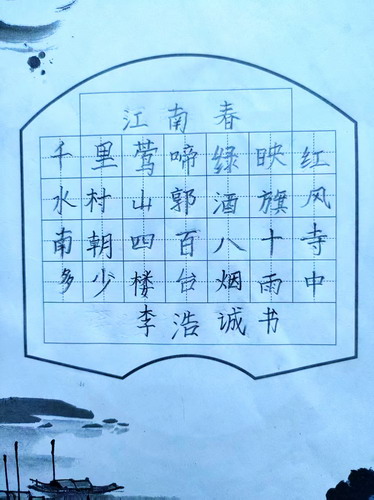 江南春
千里莺啼绿映红
水村山郭酒旗风
南朝四百八十寺
多少楼台烟雨中
李浩诚书